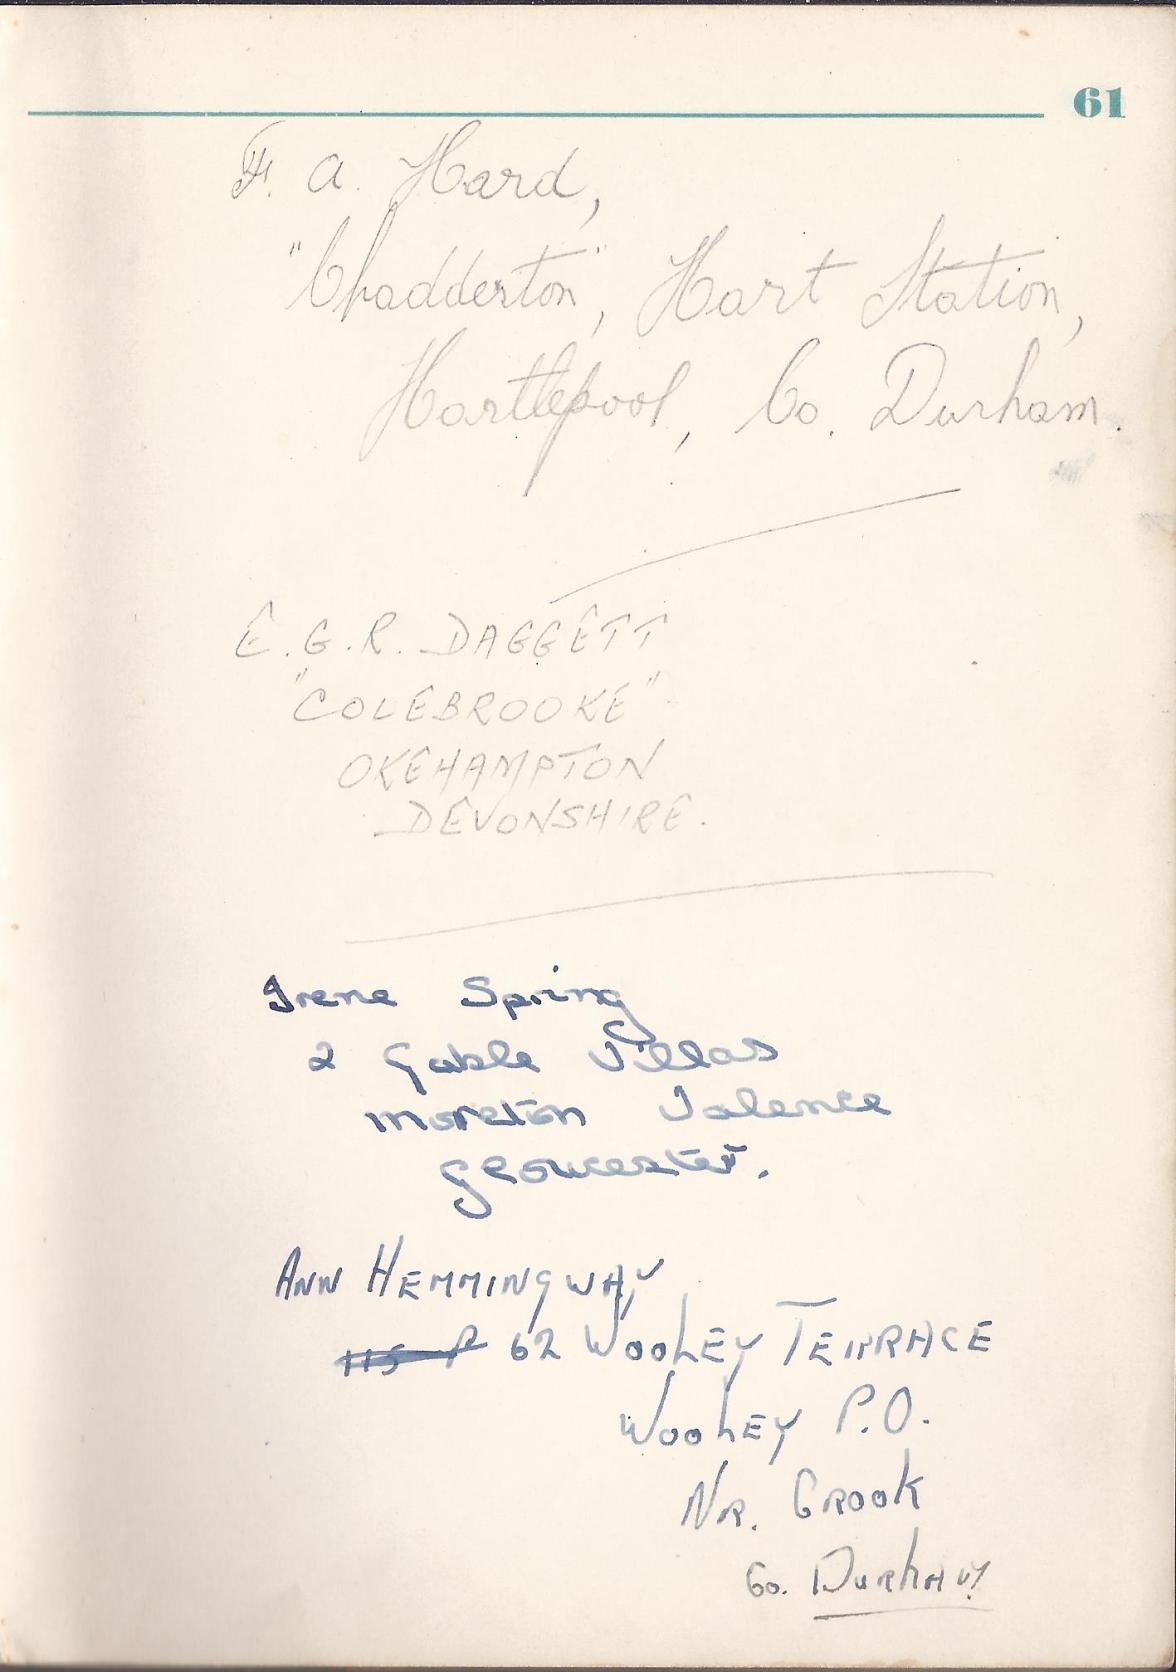 61
F. A. Hard,
"Chadderton", Hart Station,
Hartlepool, Co. Durham.
E.G.R. DAGGETT
"COLEBROOKE"
OKEHAMPTON
DEVONSHIRE.
Irene Spring
2 Gable Villas
Moreton Valence
Gloucester.
ANN HEMMINGWAY
115 P 62 WOOLEY TERRACE
WOOLEY P.O.
NR. CROOK
Co. DURHAM